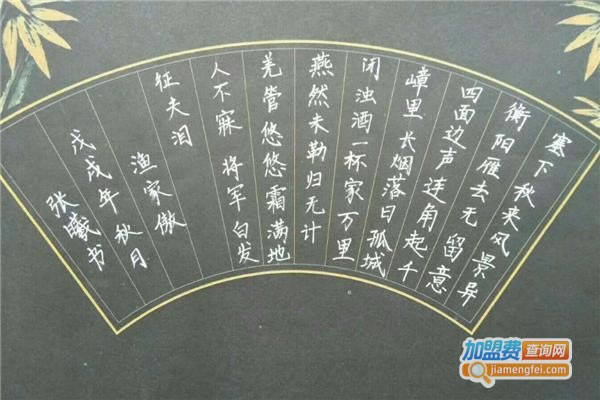 塞下秋来风景异
衡阳雁去无留意
四面边声连角起千
嶂里长烟落日孤城
闭浊酒一杯家万里
燕然未勒归无计
羌管悠悠霜满地
人不寐将军白发
征夫泪
渔家傲
戊戌年秋月
张曦书
加盟费查询网
jiamengfei.com